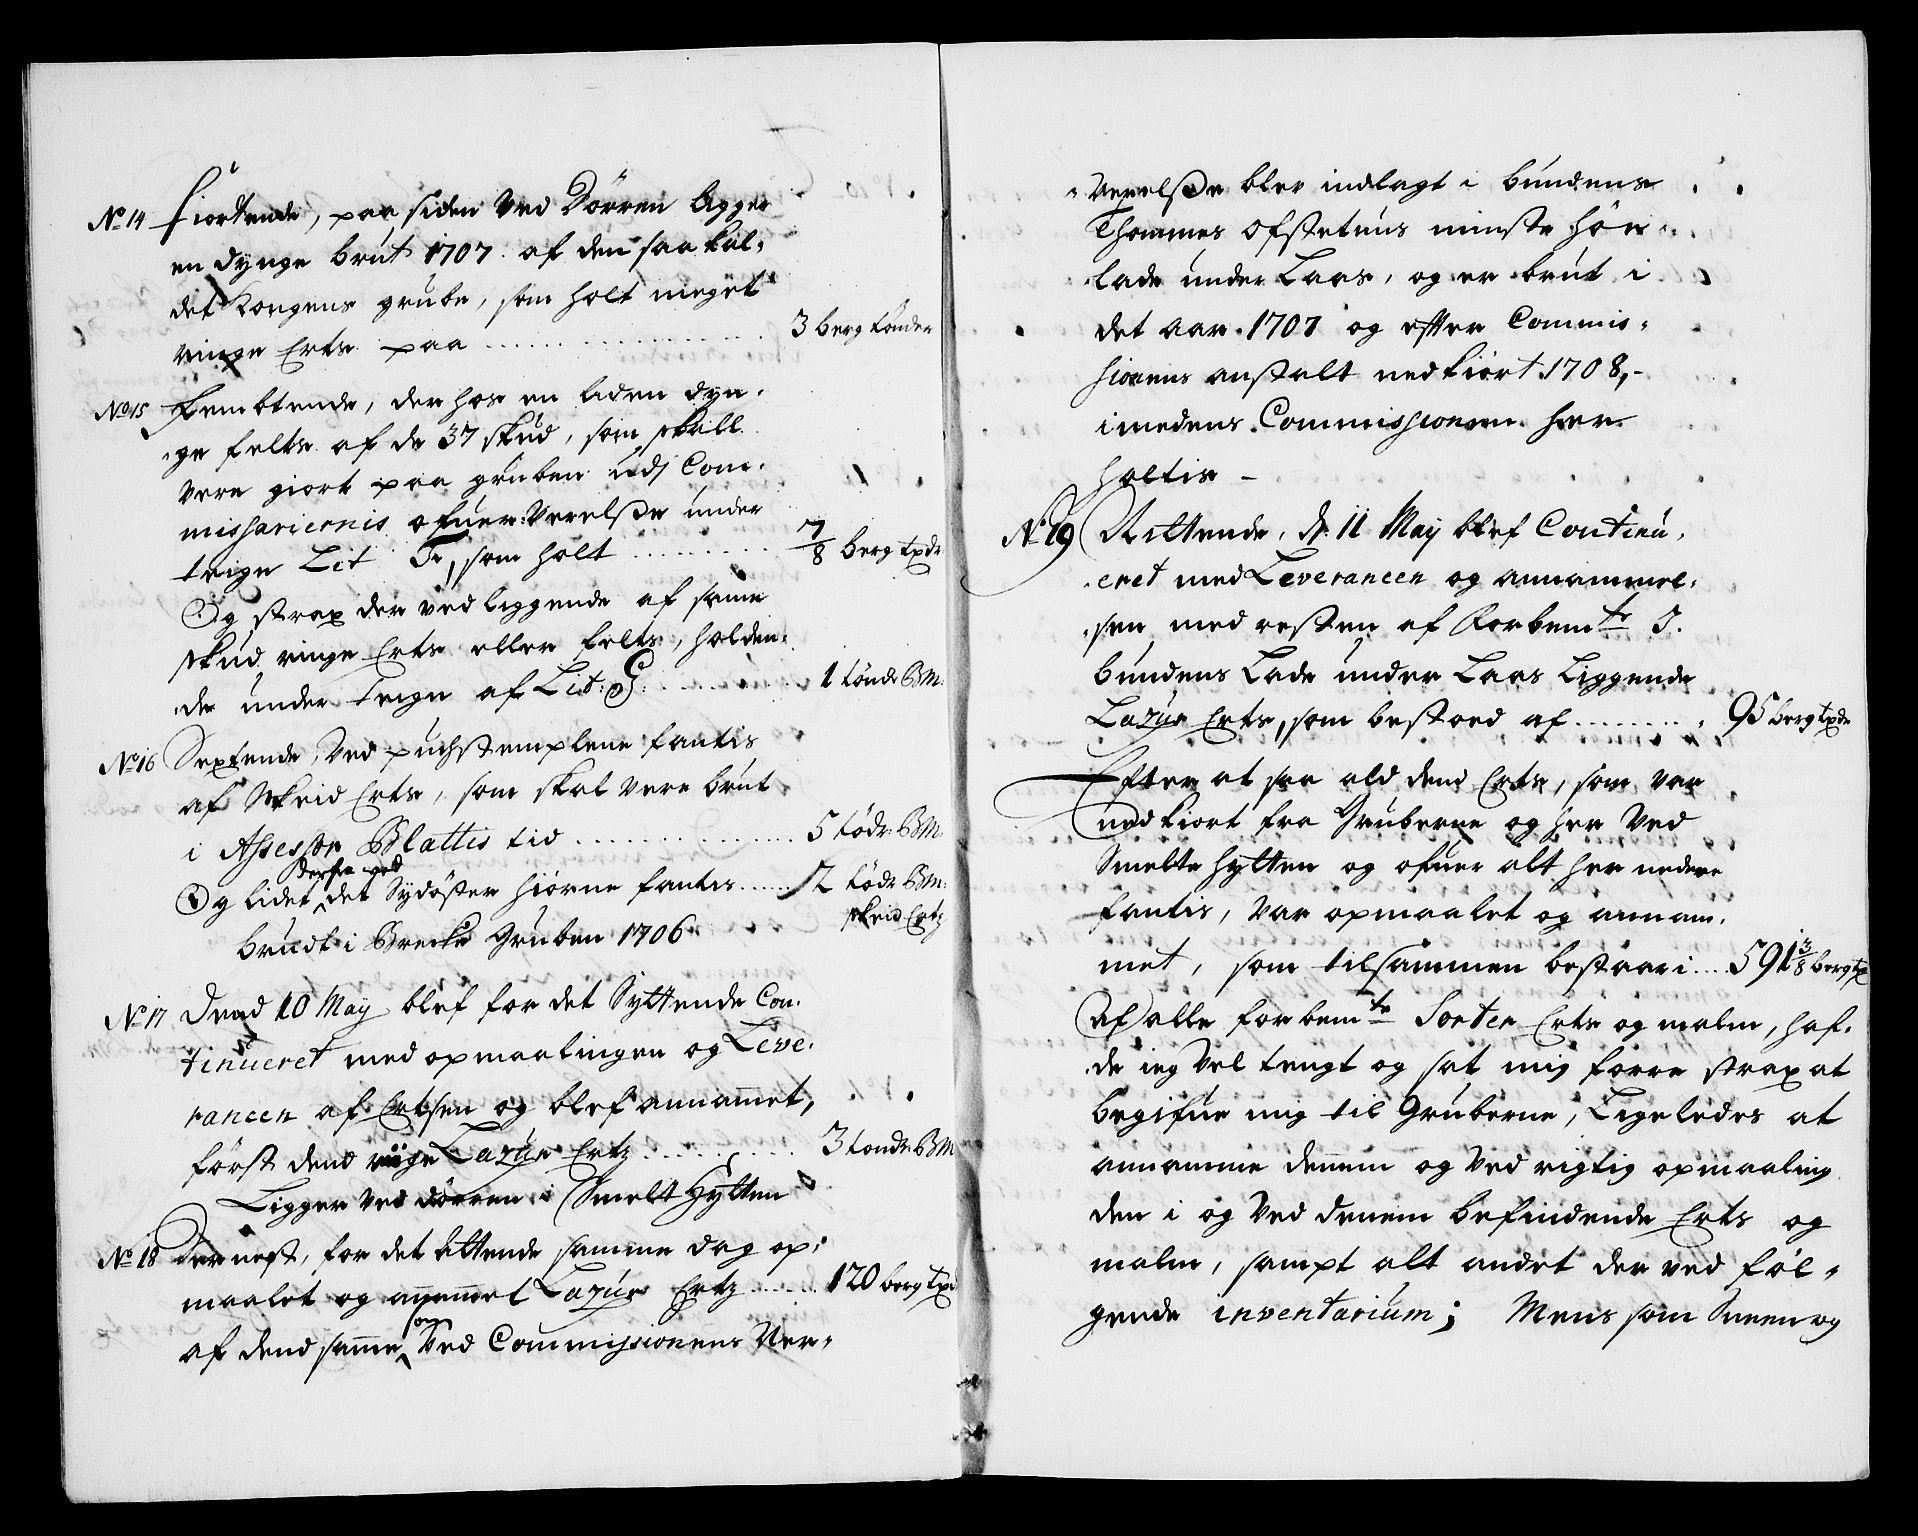 No 14 fiortende, paa siden Ved Dörren ligger
en dynge brut 1707 af den saa kal-
det Kongens grube, som holt meget
ringe Erts paa ........ 3 berg tönder
No 15 fembtende, der hos en liden dyn-
ge felts af de 37 skud, som skall
vere giort paa gruben udj Com-
missariernis ofuer-Verelsse under
teign Lit F, som holt ........ 7/8 berg tpdr
Og strax der ved liggende af same
skud ringe Erts eller felts, holden-
de under teign af Lit: G ........ 1 tönde BM:
No 16 Sextende, Ved puchstemplene fantis
af Skeid Erts, som skal vere brut
i Assessor Blattis tid ........ 5 tödr: BM:
Og lidet derfra ved det Sydöster hiörne fantis ...... 2 tödr BM:
brudt i Brecke Gruben 1706 skeid Ertz
No 17 Dend 10 May blef for det Syttende Con-
tinueret med opmaalingen og Leve-
rancen af Ertsen og blef annamet,
först dend riige Lazur Ertz ........ 3 tondr: BM
Ligger Ved dörren i Smelt Hytten
No 18 Der nest, for det Attende samme dag op-
maalet og annamet Lazur Ertz ...... 120 berg tpd
af dend same som Ved Commissionens Ver-
Verelsse blev indlagt i bundens
Thommes Ofstetuns minste hön-
lade under Laas, og er brut i
det aar 1707 og efter Commis-
sionens anstalt nedkiört 1708,-
imedens Commissionen her
holtis -
No 19 Nittende, d: 11 May blef Continu-
eret med Leverancen og annammel-
sen med resten af forbemte I.
bundens Lade under Laas Liggende
Lazur Erts, som bestoed af ........ 95 berg tpdr
Efter at saa ald dend Erts, som var
nedkiort fra Gruberne og her Ved
Smelte hytten og ofuer alt her nedere
fantis, var opmaalet og annam-
met, som tilsammen bestaar i .... 591 3/8 berg tp
Af alle forbemte Sorter Erts og malm, haf-
de ieg Vel tengt og sat mig forre strax at
begifue mig til Gruberne, Ligeledes at
annamme denem og Ved rigtig opmaaling
den i og Ved denem befindende Erts og
malm, sampt alt andet der ved föl-
gende inventarium; Mens som Sneen og